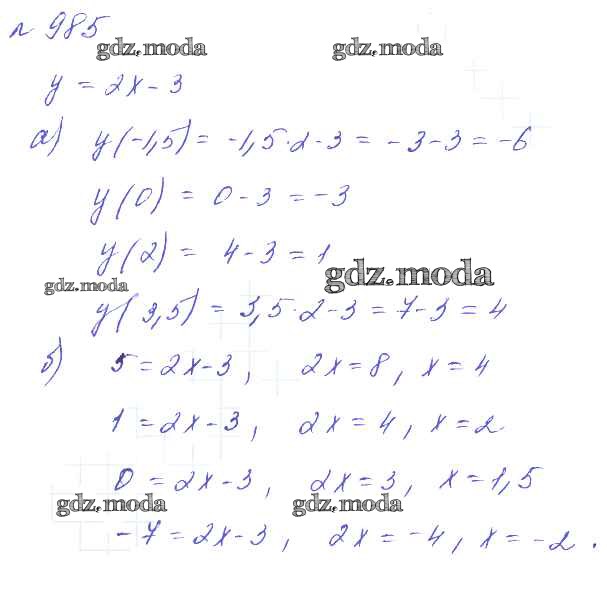 № 985
gdz.moda gdz.moda
y = 2x - 3
а) y(-1,5) = -1,5·2-3 = -3-3 = -6
y(0) = 0-3 = -3
y(2) = 4-3 = 1
gdz.moda gdz.moda
y(3,5) = 3,5·2-3 = 7-3 = 4
б) 5 = 2x-3, 2x = 8, x = 4
1 = 2x-3, 2x = 4, x = 2
0 = 2x-3, 2x = 3, x = 1,5
gdz.moda gdz.moda
-7 = 2x-3, 2x = -4, x = -2.